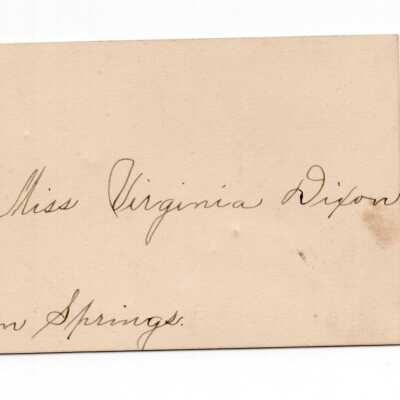 Miss Virginia Dixon
n Springs.